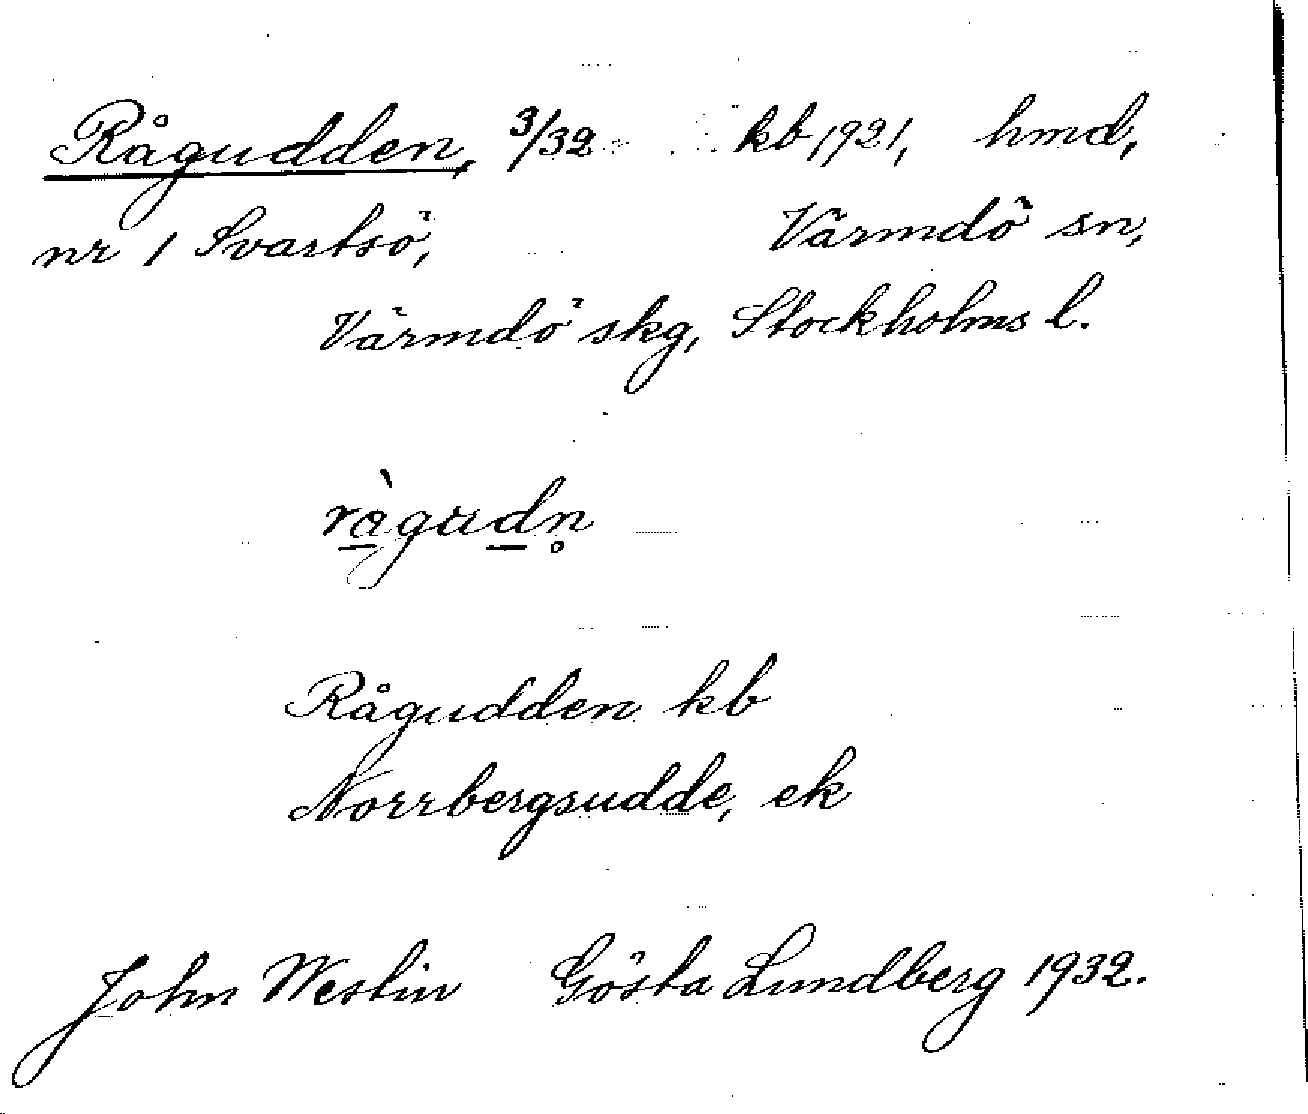 Rågudden, 3/32 kb 1921, hmd,
nr 1 Svartsö, Värmdö sn,
Värmdö skg, Stockholms l.
rà̱gud̲n̥
Rågudden kb
Norrbergsudde, ek
John Westin Gösta Lundberg 1932.